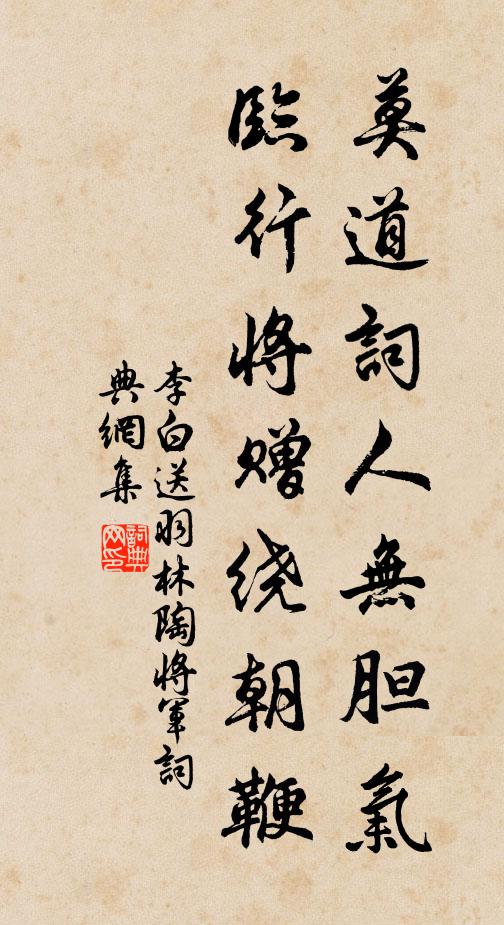 莫道詞人無胆氣
臨行将贈绕朝鞭
李白送羽林陶将軍詞
典網集
詞典
网印